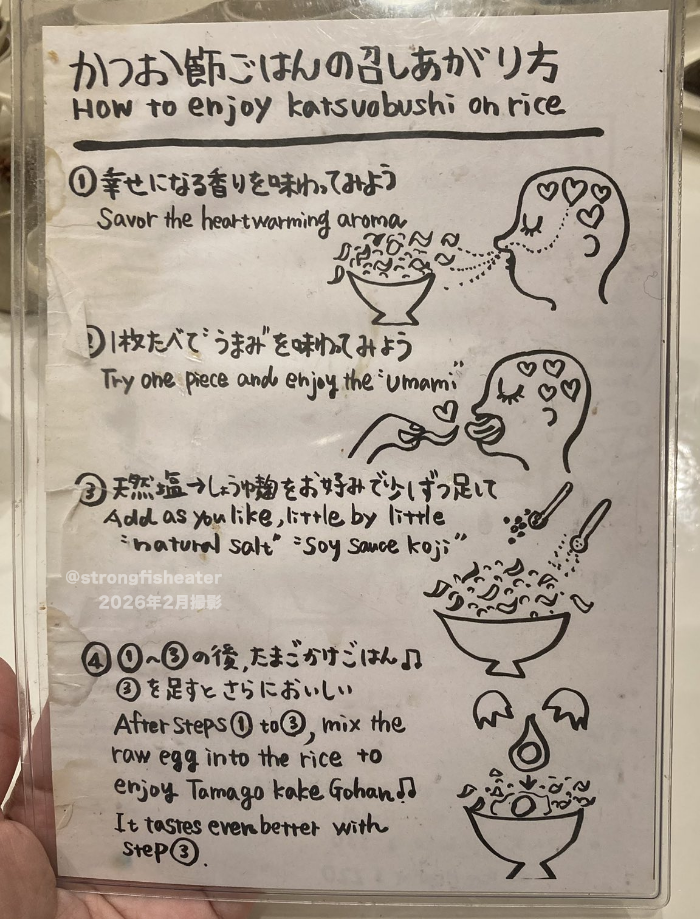 かつお節ごはんの召しあがり方
How to enjoy katsuobushi on rice
①幸せになる香りを味わってみよう
Savor the heartwarming aroma
②1枚たべて"うまみ"を味わってみよう
Try one piece and enjoy the "Umami"
③天然塩→しょうゆ麹をお好みで少しずつ足して
Add as you like, little by little
"natural salt" "Soy Sauce koji"
@strongfisheater
2026年2月撮影
④①〜③の後,たまごかけごはん♫
③を足すとさらにおいしい
After steps①to③, mix the
raw egg into the rice to
enjoy Tamago kake Gohan♫
It tastes even better with
step③.